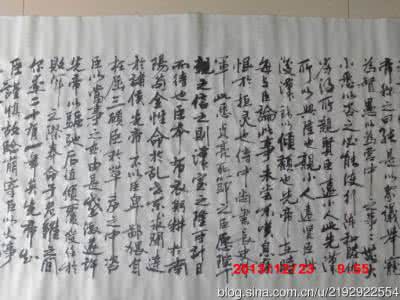 帝称之曰能是以眾議舉寵
為督愚以為營中之事悉
小悉以咨之必能使行陣和睦
劣得所親賢臣遠小人此先漢
所以興隆也親小人遠賢臣此
後漢所以傾頹也先帝在時
每与臣論此事未嘗不嘆息痛
恨於桓靈也侍中尚書長史參
軍此悉貞良死節之臣願陛下
親之信之則漢室之隆可計日
而待也臣本布衣躬耕於南
陽苟全性命於亂世不求聞達
於諸侯先帝不以臣卑鄙猥自
枉屈三顧臣於草廬之中咨
臣以當事之世由是感激遂許
先帝以驅馳后值傾覆受任於
敗軍之際奉命於危難之間
尔來二十有一年矣先帝知
臣謹慎故臨崩寄臣以大事
2013/12/23 9:55
blog.sina.com.cn/u/2192922554